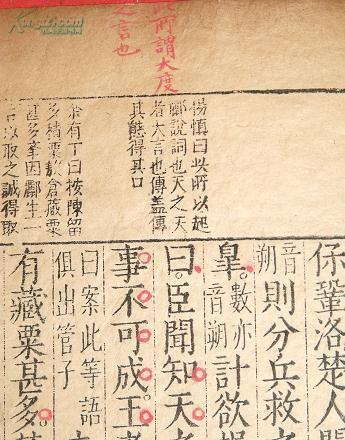 所謂大度
之言也
楊慎曰此所以起
酈說詞也天之天
者大言也傳蓋傳
其態得其口
余有丁曰按陳留
多積粟敖倉藏粟
甚多幸因酈生一
言以取之誠得取
保鞏洛楚人
音
朔
則分兵救
皐。
數亦
音朔
計欲
曰。臣聞知天
事不可成。王
曰案此等語
俱出管子
有藏粟甚多。